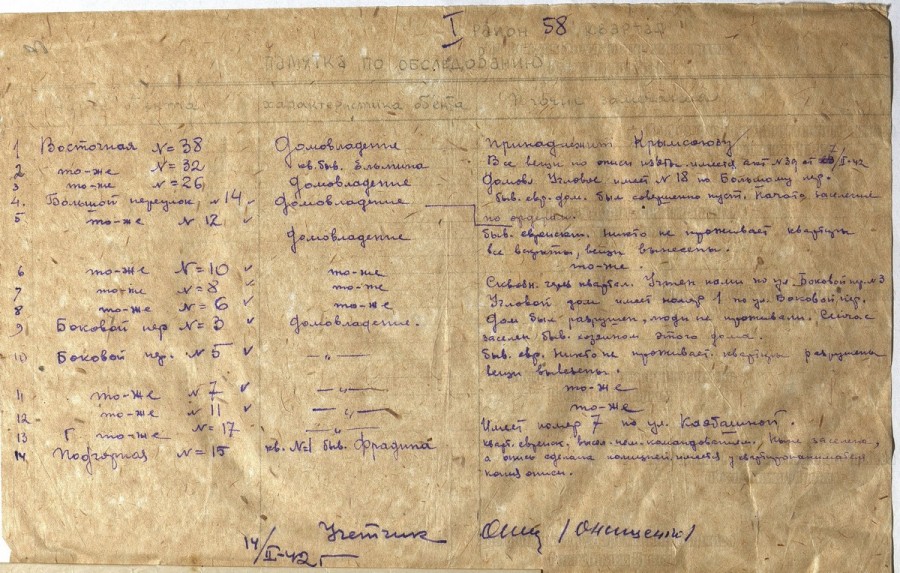 I район 58 квартал
ПАМЯТКА ПО ОБСЛЕДОВАНИЮ
характеристика обекта
1 Восточная №=38 Домовладение принадлежит Крымсоюзу
2 то-же №=32 кв. быв. Елькина Все вещи по описи изъяты имеется акт №39 от /II-42
3 то-же №=26 Домовладение Домовл. Угловое имеет №18 по Большому пер.
4. Большой переулок, №14 Домовладение быв. евр. дом. был совершенно пуст. Начато заселение
по ордерам.
5 то-же №12 Домовладение быв. еврейский. Никто не проживает квартиры
все вскрыты, вещи вынесены.
6 то-же №=10 то-же то-же.
7 то-же №=8 то-же Сквозн. через квартал. Учтен нами по ул. Боковой пер. №3
8 то-же №=6 то-же Угловой дом имеет номер 1 по ул. Боковой пер.
9 Боковой пер №=3 Домовладение. Дом был разрушен, люди не проживали. Сейчас
заселен быв. хозяином этого дома.
10 Боковой пер. №5 —„— быв. евр. Никто не проживает. квартиры разрушены
вещи вывезены.
11 то-же №7 —„— то-же
12 то-же №11 —„— то-же
13 Г. то-же №=17 —„— Имеет номер 7 по ул. Каштановой.
14 Подгорная №=15 кв. №1 быв. Фрадина кварт. еврейск. нем. командованием. Ныне заселена,
а опись сделана полицией, имеется у квартиронанимателя
копия описи.
14/II-42 г Учетчик Онищ /Онищенко/